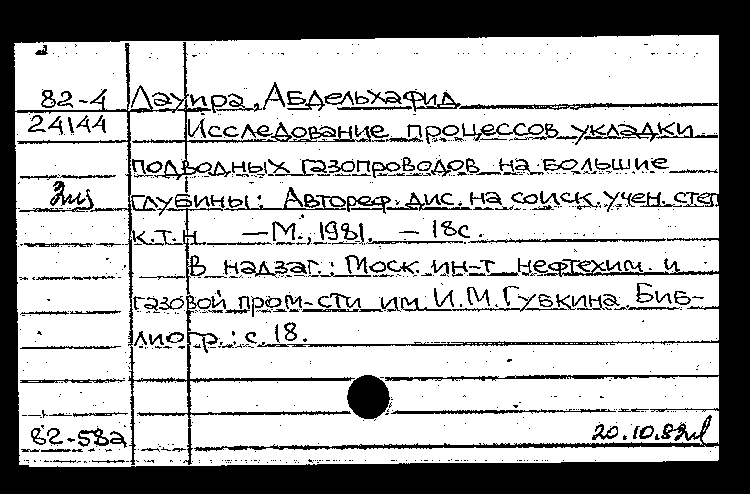 82-4 Лаупра, Абдельхафид
24144 Исследование процессов укладки
подводных газопроводов на большие
глубины: Автореф. дис. на соиск. учен. степ
к.т.н — М., 1981. — 18с.
В надзаг.: Моск. ин-т нефтехим. и
газовой пром-сти им. И.М. Губкина. Биб-
лиогр.: с. 18.
82-582 20.10.82